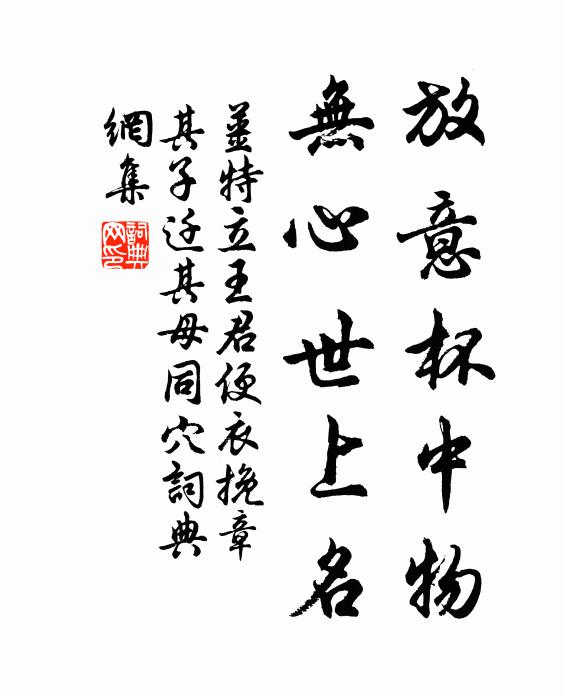 放意杯中物
無心世上名
姜特立王君便衣挽章
其子迁其母同穴詞典
網集
詞典
网印